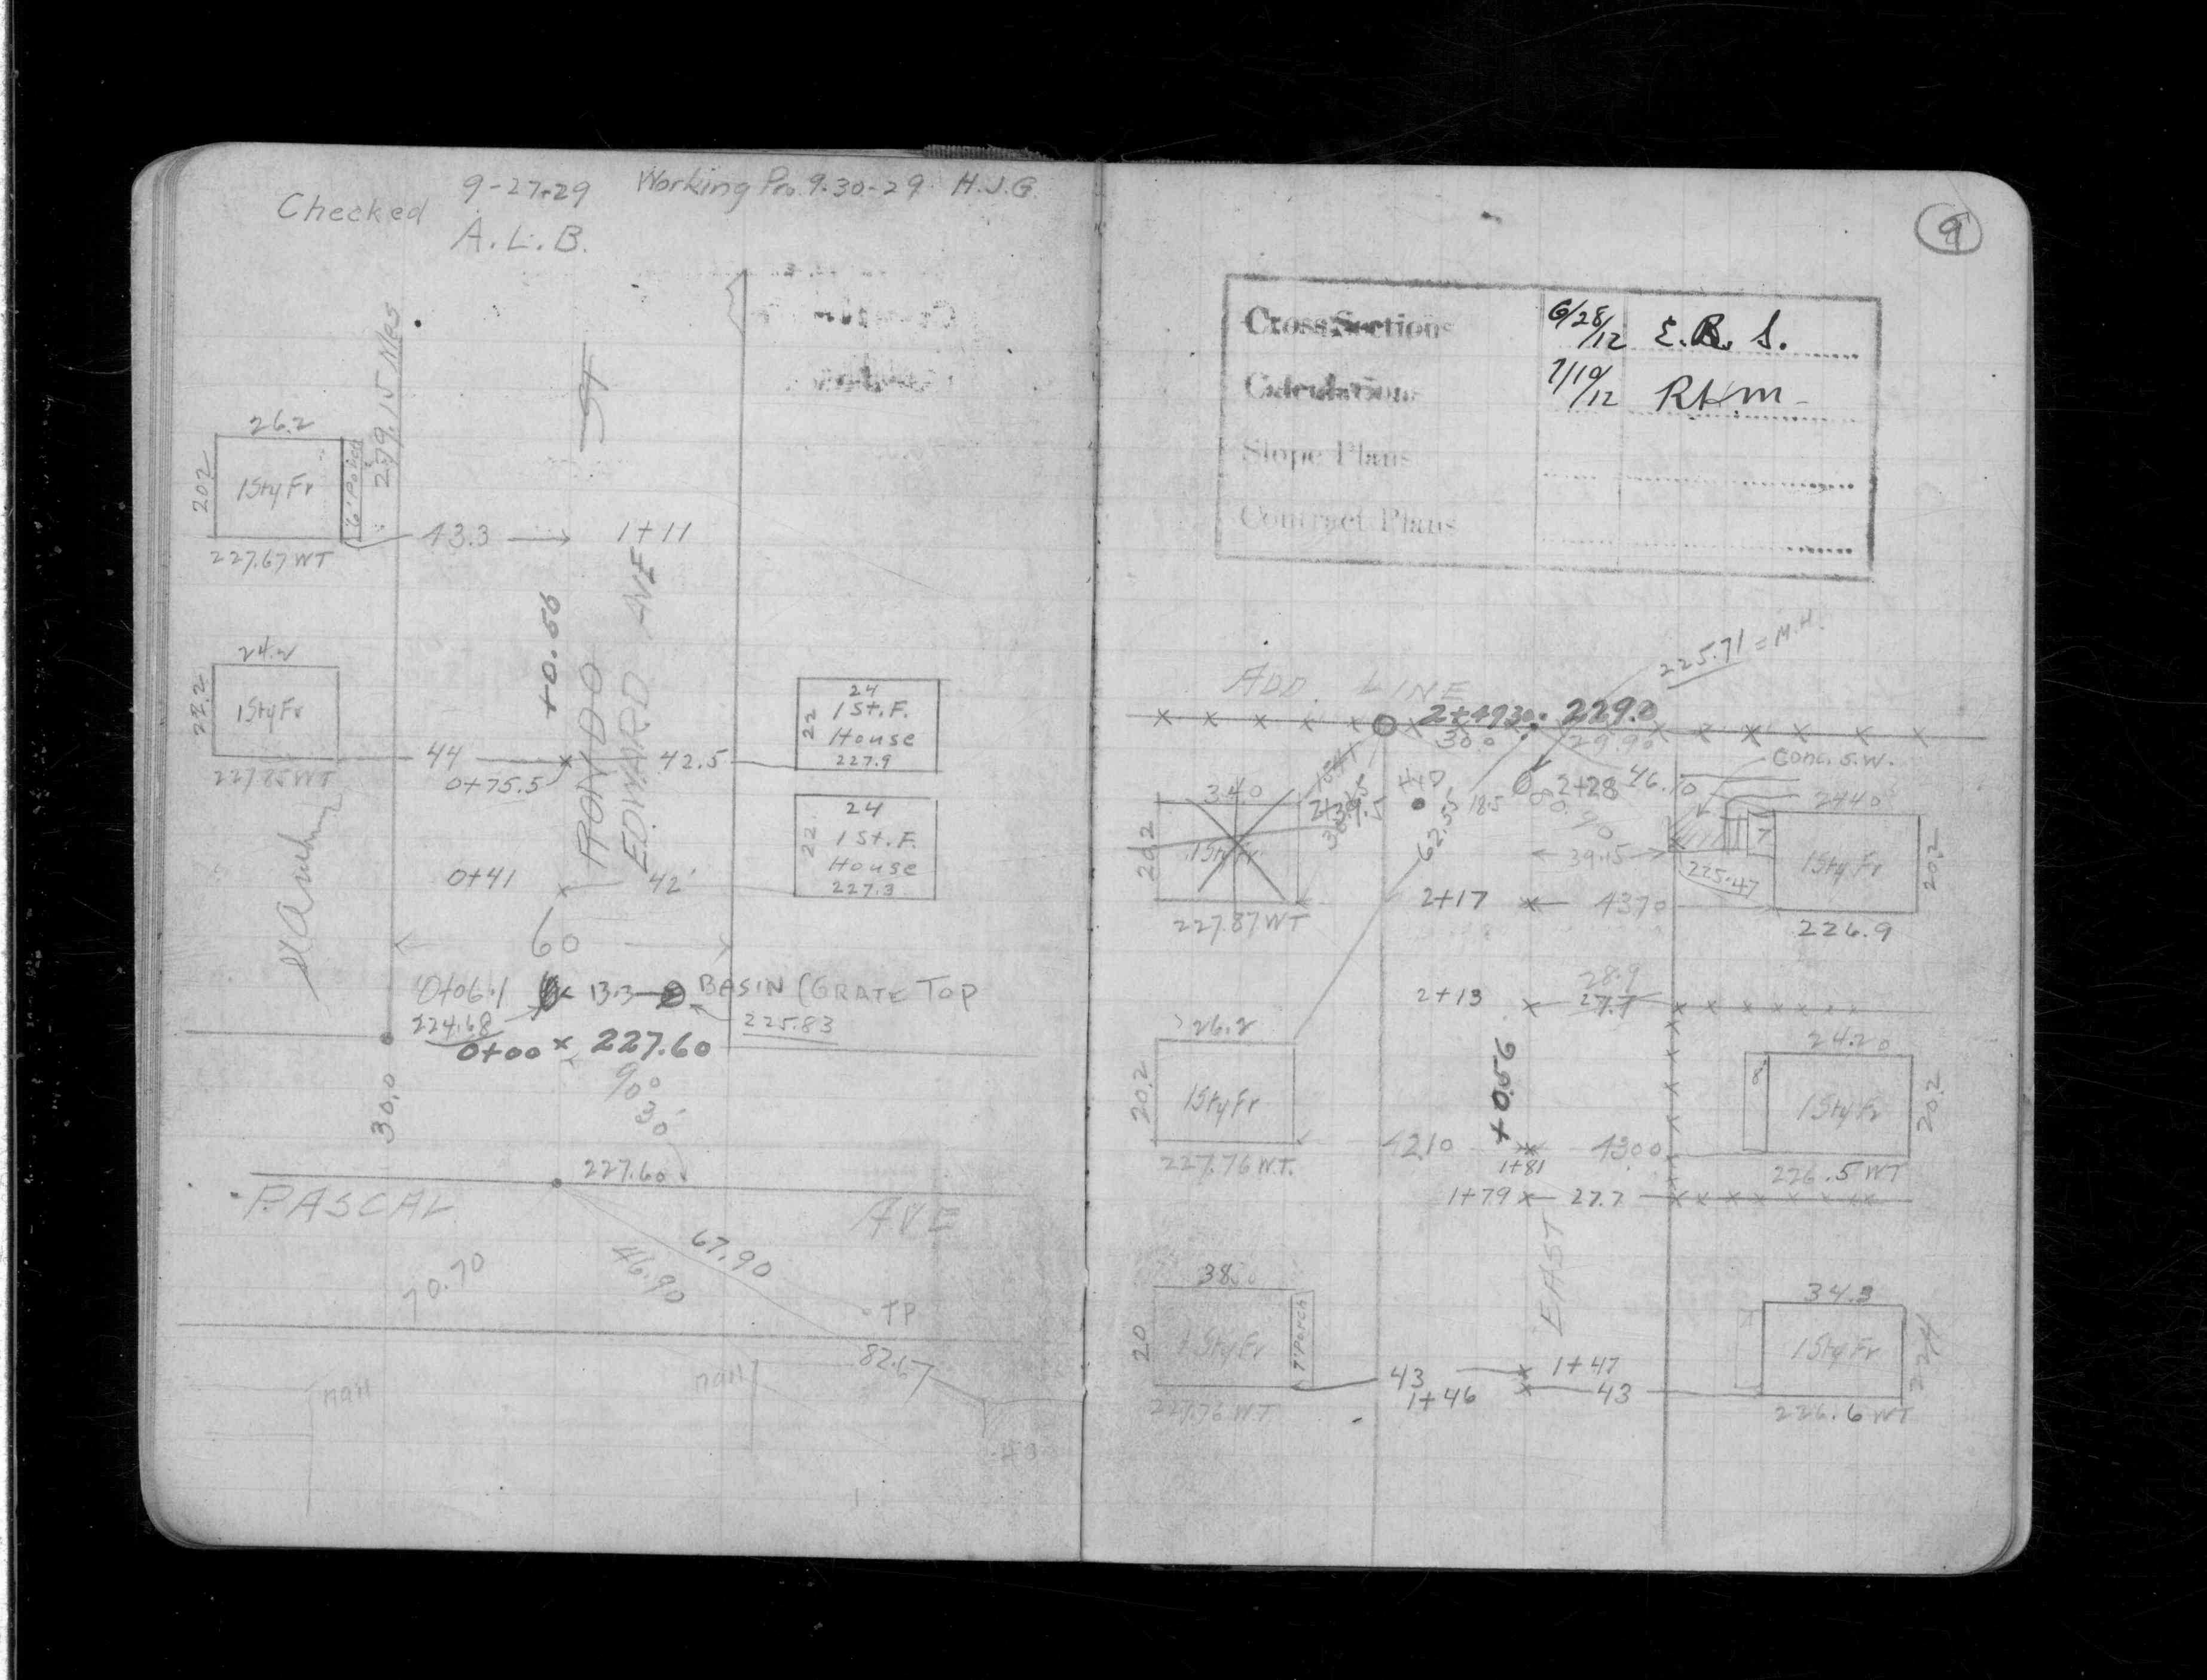 9-27-29 Working Pro. 9-30-29 H.J.G.
Checked
A.L.B.
279.15 Mes
St
26.2
202
1 Sty Fr
6' Porch
227.67 WT
43.3
1+11
+0.56
RONDO
EDWARD AVE
24.2
22.2
1 Sty Fr
44
0+75.5
42.5
24
22
1 St. F.
House
227.9
24
22
1 St. F.
House
227.3
0+41
42'
60
0+06.1
13.3
BASIN (GRATE TOP
224.68
225.83
0+00 x 227.60
90°
30'
30.0
227.60
PASCAL AVE
70.70
67.90
46.90
TP
82.67
nail
nail
9
Cross Sections 6/28/12 E.R.S.
Calculations 7/10/12 RHM
Slope Plans
Contract Plans
225.71 = M.H.
ADD. LINE
2+4930
229.0
30.0
29.90
Conc. S.W.
340
20.2
1 Sty Fr
227.87 WT
2+39.5
HYD
18.5
62.55
2+28
46.10
80.90
39.15
2440
7
1 Sty Fr
20.2
225.47
226.9
2+17
4370
28.9
2+13
27.7
26.2
20.2
1 Sty Fr
227.76 W.T.
4210
+0.56
1+81
4300
24.20
8'
1 Sty Fr
20.2
226.5 WT
1+79
27.7
EAST
38.0
20
1 Sty Fr
7' Porch
227.76 WT
43
1+47
1+46
43
34.3
1 Sty Fr
226.6 WT